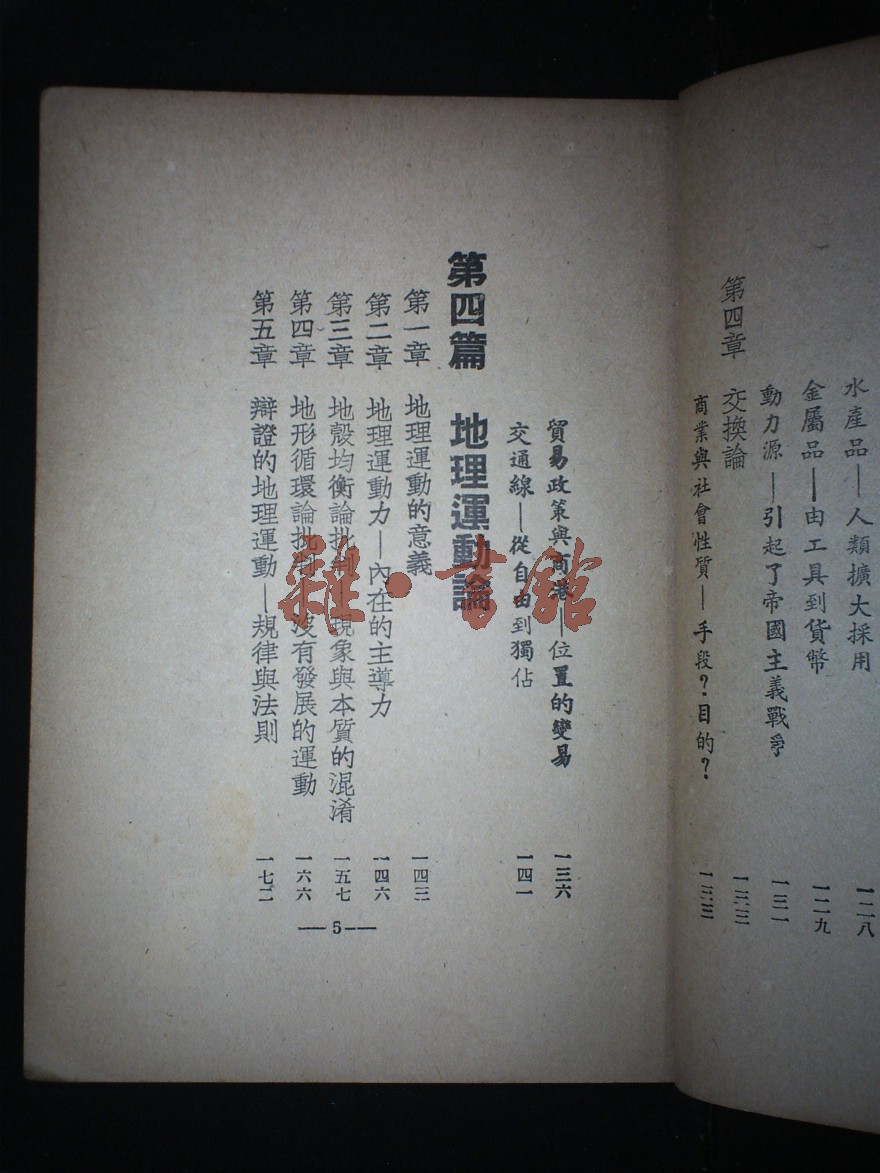 水產品—人類擴大採用 一二八
金屬品—由工具到貨幣 一二九
動力源—引起了帝國主義戰爭 一三一
第四章 交換論 一三三
商業與社會性質—手段?目的? 一三三
貿易政策與商港—位置的變易 一三六
交通線—從自由到獨佔 一四一
第四篇 地理運動論
第一章 地理運動的意義 一四三
第二章 地理運動力—內在的主導力 一四六
第三章 地殼均衡論批判—現象與本質的混淆 一五七
第四章 地形循環論批判—沒有發展的運動 一六六
第五章 辯證的地理運動—規律與法則 一七二
—5—
雜·書館